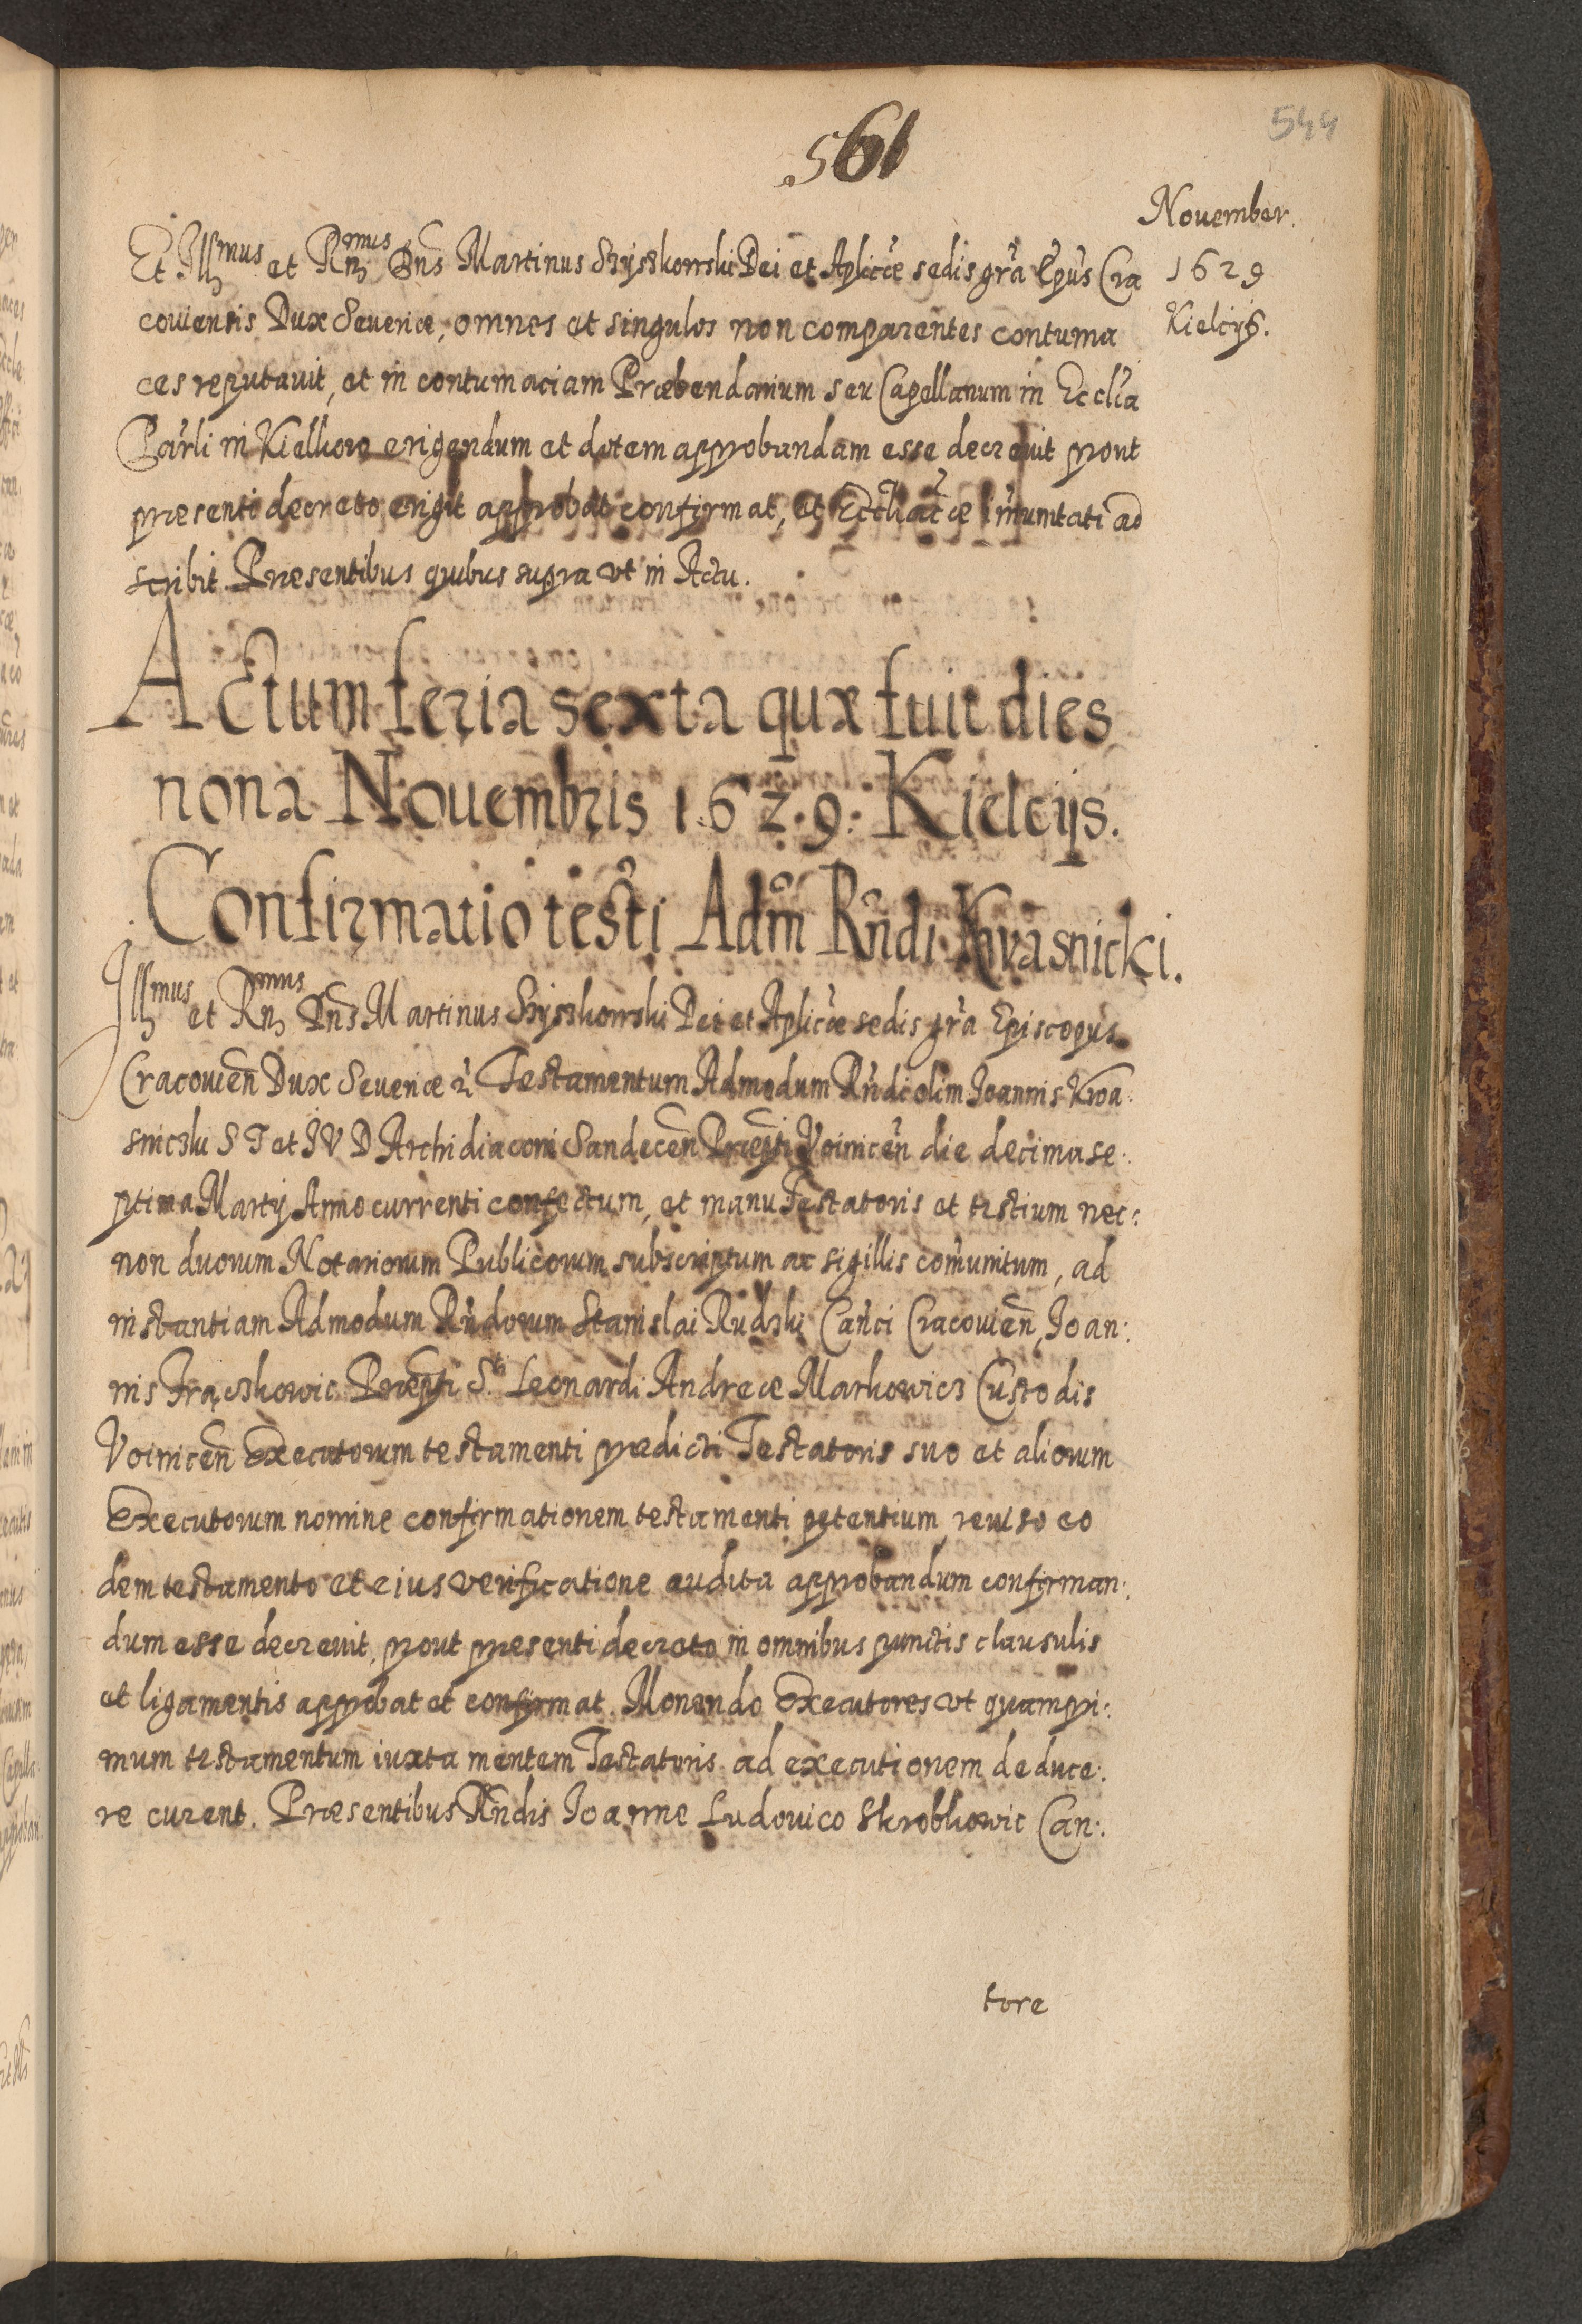 .561
544
November.
1629
Kielcijs.
Et Illmus et Rnmus Dns Martinus Szyszkowski Dei et Aplicæ sedis gra Epus Cra
couiensis Dux Seueriæ, omnes et singulos non comparentes contuma
ces reputauit, et in contumaciam Præbendarium seu Capellanum in Ecclia
Parli in Kielkow erigendum et dotem approbandam esse decreuit prout
præsenti decreto erigit approbat confirmat, et Eccliaticæ imunitati ad
scribit. Præsentibus quibus supra vt in Actu.
Actum feria sexta quæ fuit dies
nona Nouembris 1.6 2.9. Kielcijs.
Confirmatio testi Adm Rndi Kwasnicki.
Illmus et Rnmus Dns Martinus Szyszkowski Dei et Aplicæ sedis gra Episcopus
Cracouien Dux Seueriæ Testamentum Admodum Rndi olim Joannis Kwa:
sniczki S T et J V D Archidiaconi Sandecen Præpti Voinicen die decima se:
ptima Martij Anno currenti confectum, et manu Testatoris et testium nec:
non duorum Notariorum Publicorum subscriptum ac sigillis comunitum, ad
instantiam Admodum Rndorum Stanislai Rudzki Canci Cracouien, Joan:
nis Frączkowic Præpti Sti Leonardi Andreæ Markowicz Custodis
Voinicen Executorum testamenti prædicti Testatoris suo et aliorum
Executorum nomine confirmationem testamenti petentium, reuiso eo
dem testamento et eius verificatione audita approbandum confirman:
dum esse decreuit, prout præsenti decreto in omnibus punctis clausulis
et ligamentis approbat et confirmat. Monendo Executores vt quampri:
mum testamentum iuxta mentem Testatoris ad executionem deduce:
re curent. Præsentibus Rndis Joanne Ludouico Skrobkowic Can:
tore